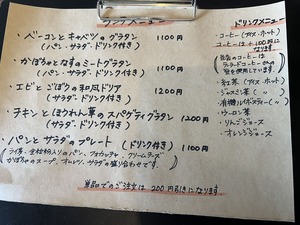 ランチメニュー
・ベーコンとキャベツのグラタン 1100円
(パン・サラダ・ドリンク付き)
・かぼちゃとなすのミートグラタン 1100円
(パン・サラダ・ドリンク付き)
・エビとごぼうの和風ドリア 1200円
(サラダ・ドリンク付き)
・チキンとほうれん草のスパゲティグラタン 1200円
(サラダ・ドリンク付き)
・パンとサラダのプレート (ドリンク付き) 1100円
(ライ麦・全粒粉入りのパン、フォカッチャ、クリームチーズ
かぼちゃのスープ、オムレツ、サラダの盛り合わせです。)
単品でのご注文は200円引きになります
ドリンクメニュー
・コーヒー(アイス・ホット)
コーヒーは+100円に
なります
当店のコーヒーは
豆を使用しています
・紅茶(アイス・ホット)
・ジャスミン茶(〃)
・有機ルイボスティー(〃)
・ウーロン茶
・りんごジュース
・オレンジジュース